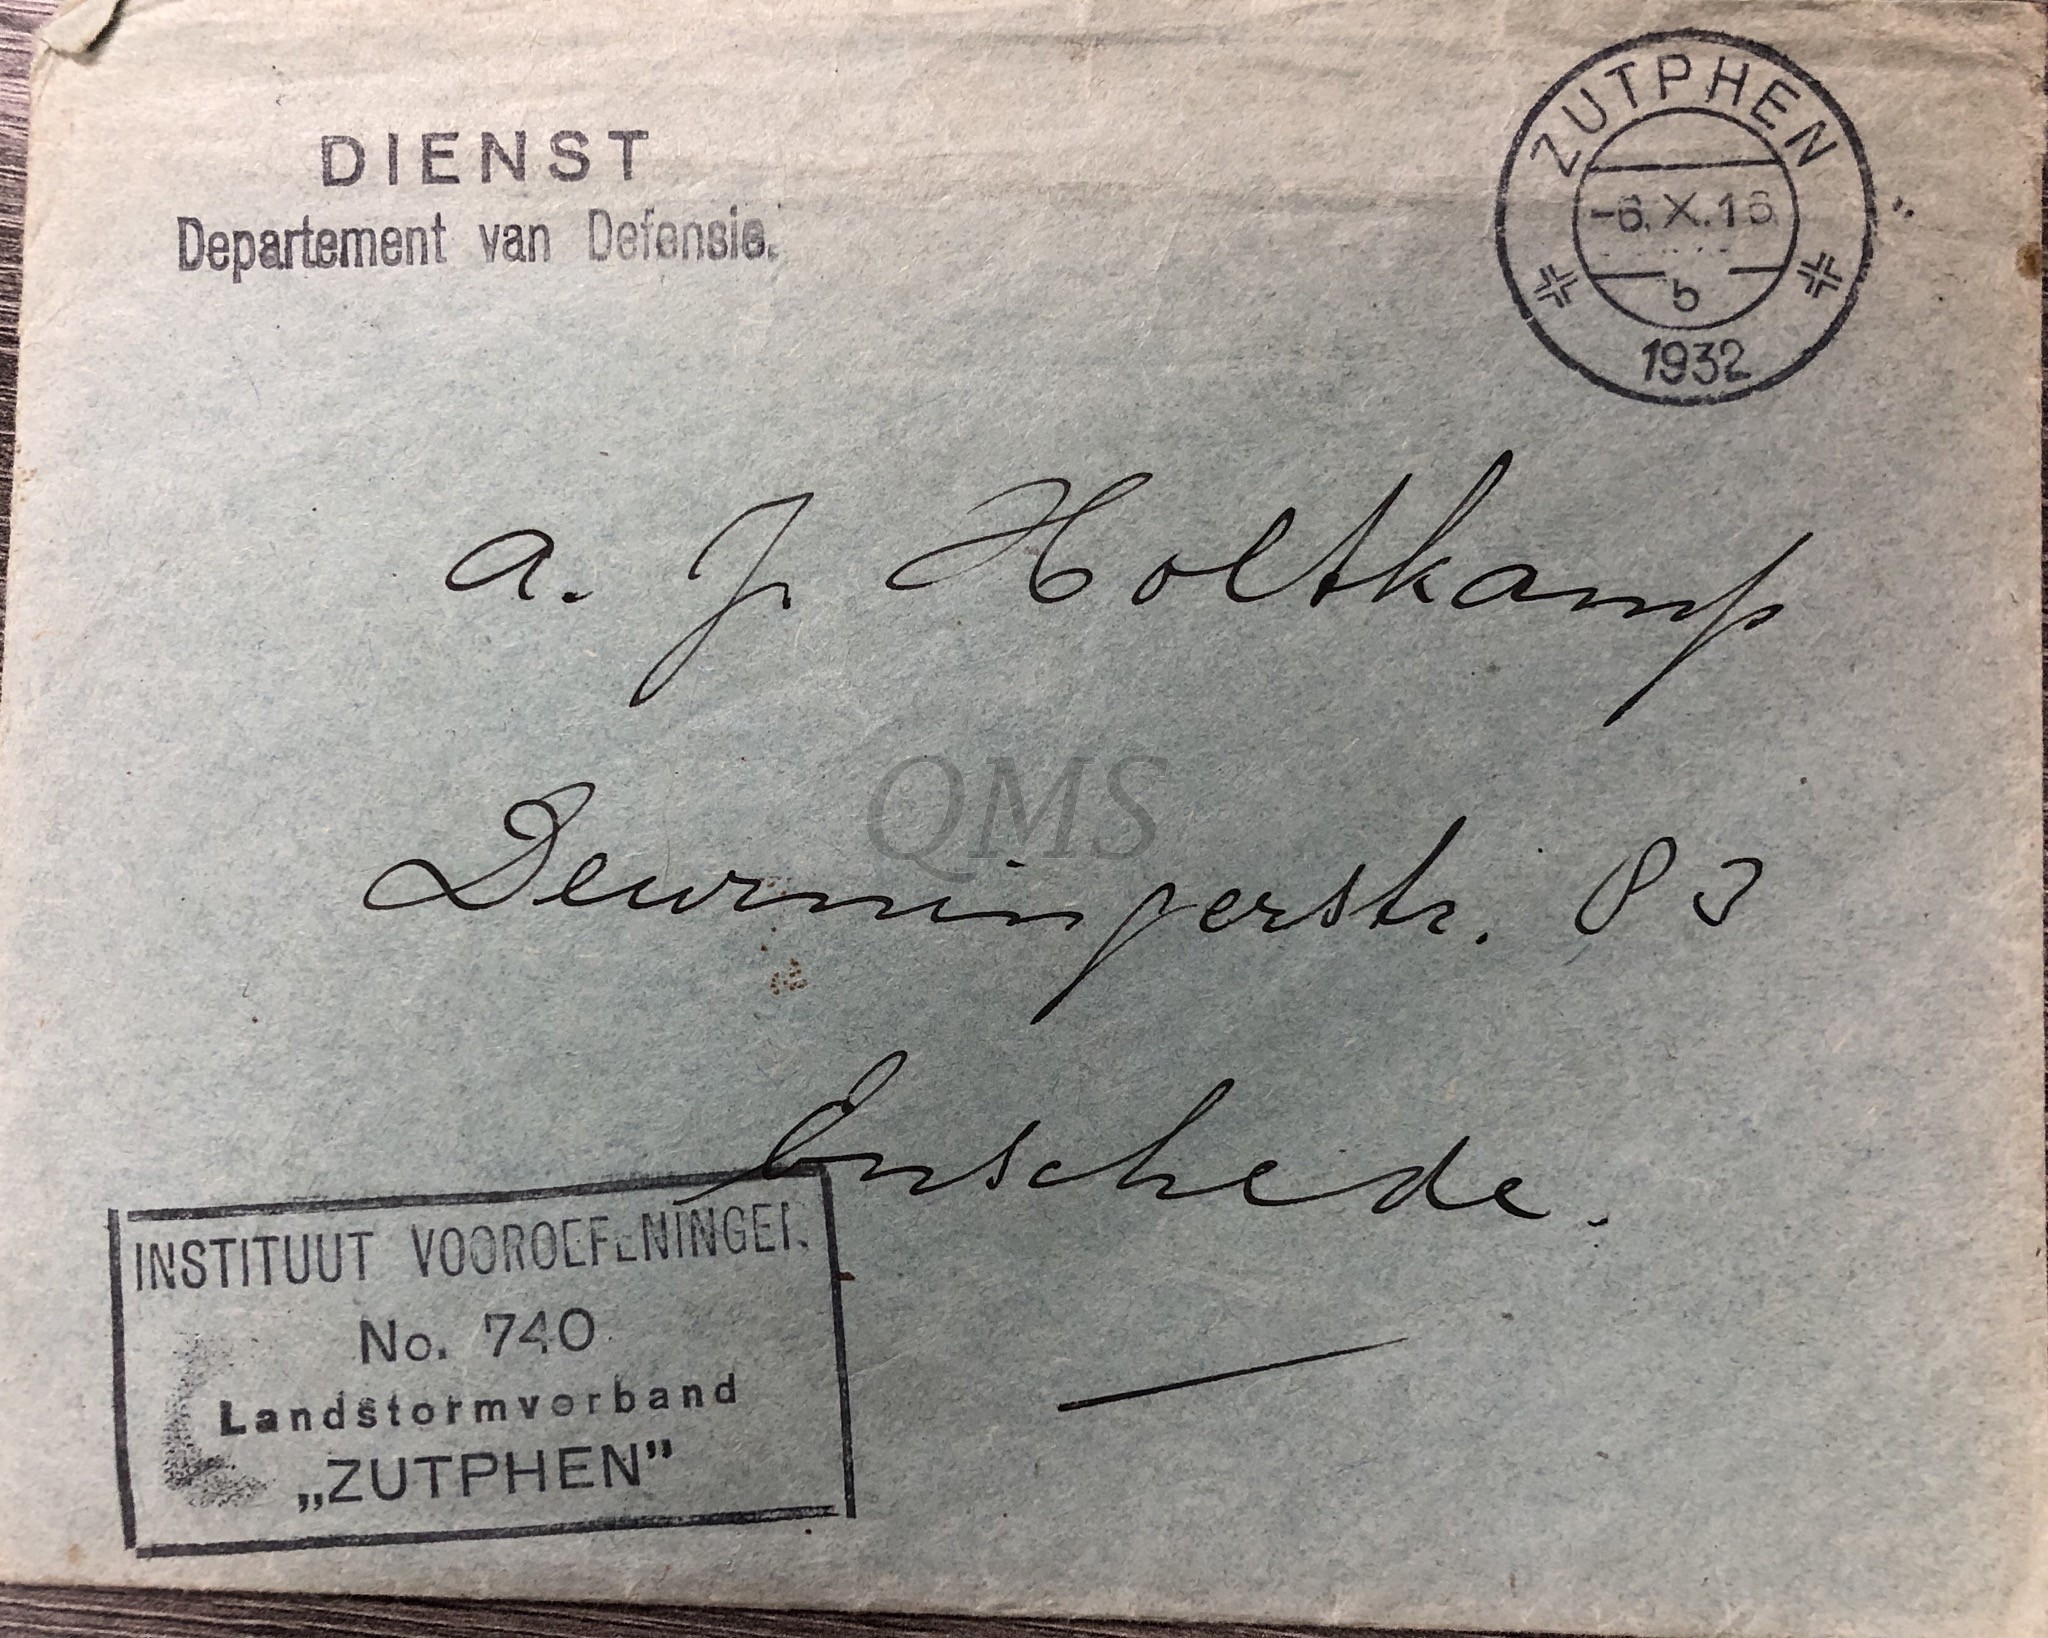 DIENST
Departement van Defensie.
ZUTPHEN
-6.X.16.
b
1932
a. J. Holtkamp
QMS
Deurningerstr. 83
Enschede.
INSTITUUT VOOROEFENINGEN
No. 740
Landstormverband
„ZUTPHEN”